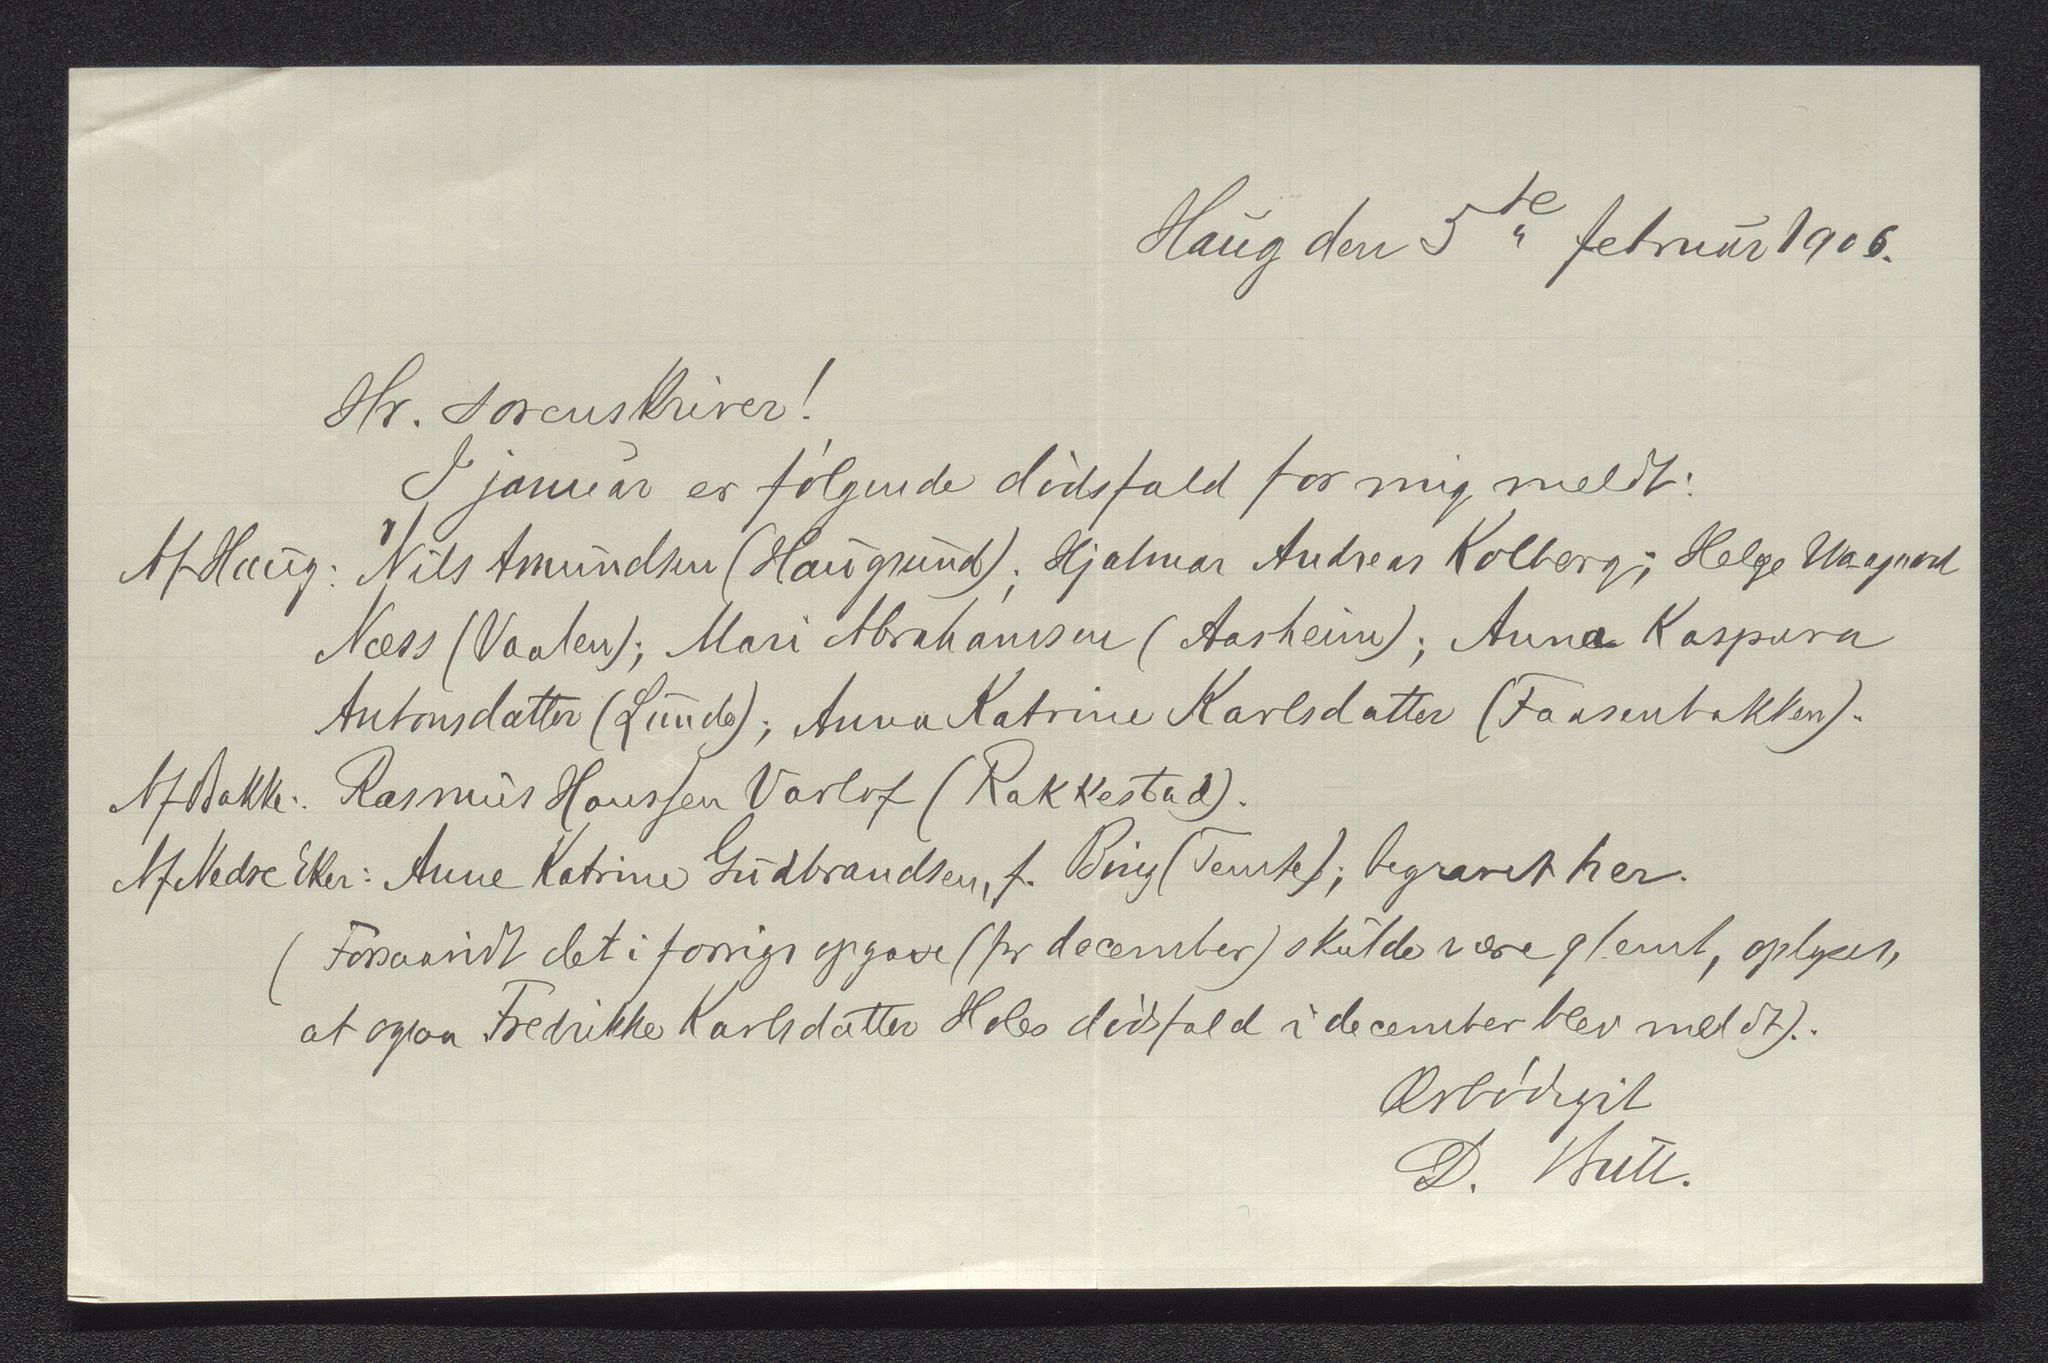 Haug den 5te februar 1906.
Hr. sorenskriver!
I januar er følgende dødsfald for mig meldt:
Af Haug: Nils Amundsen (Haugsund); Hjalmar Andreas Kolberg; Helge Waagaard
Næss (Vaalen); Mari Abrahamsen (Aasheim); Anna Kaspara
Antonsdatter (Lunde); Anna Katrine Karlsdatter (Faasenbakken).
Af Bakke: Rasmus Hanssen Varlof (Rakkestad).
Af Nedre Eker: Anne Katrine Gudbrandsen, f. Bing (Temte); begravet her.
(Forsaavidt det i forrige opgave (pr december) skulde være glemt, oplyses,
at ogsaa Fredrikke Karlsdatter Holes dødsfald i december blev meldt).
Ærbødigst
D.